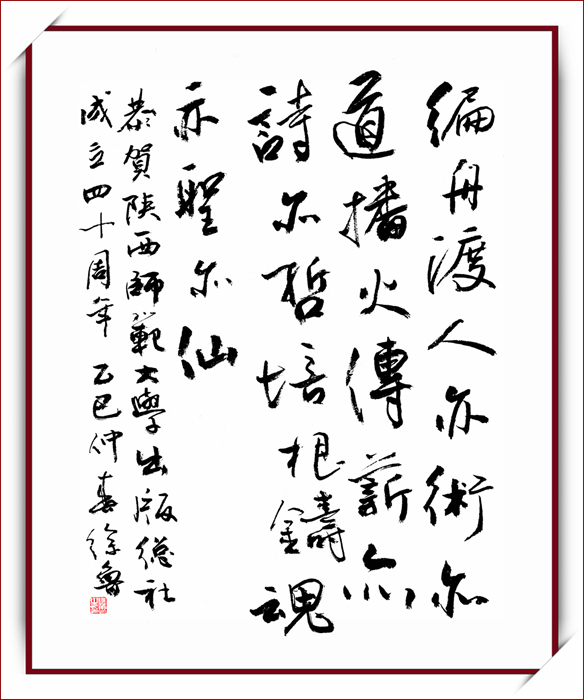 編舟渡人亦術亦
道播火傳薪亦
詩亦哲培根鑄魂
亦聖亦仙
恭賀陝西師範大學出版總社
成立四十周年 乙巳仲春徐魯